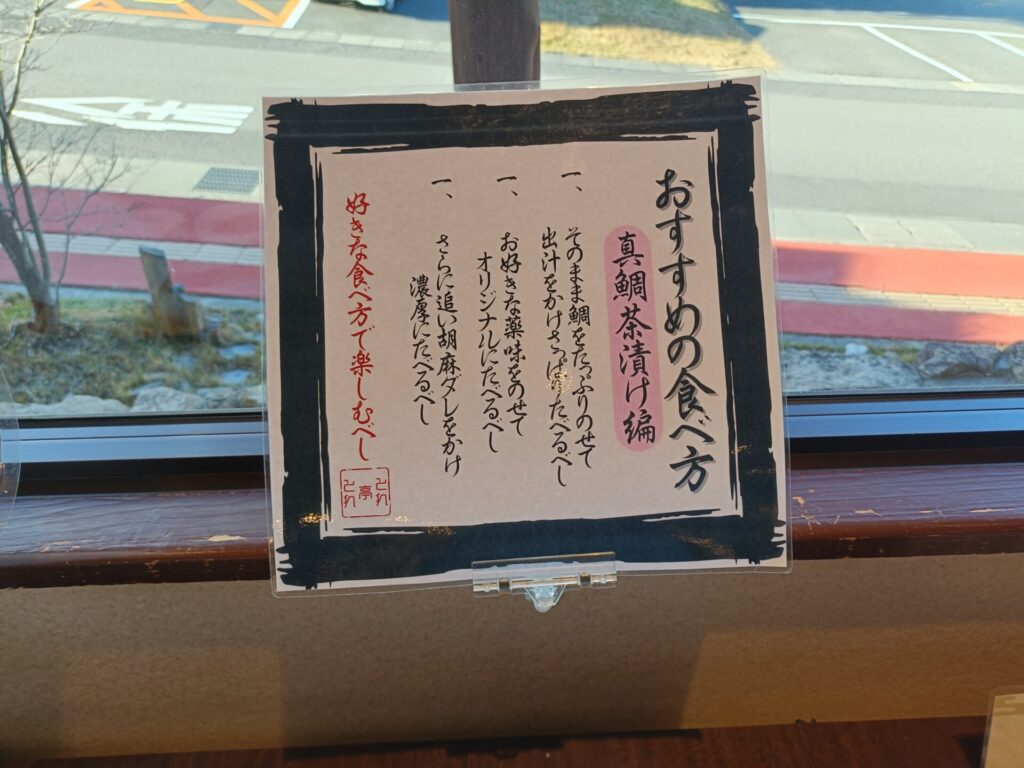 おすすめの食べ方
真鯛茶漬け編
一、そのまま鯛をたっぷりのせて
出汁をかけさっぱりたべるべし
一、お好きな薬味をのせて
オリジナルにたべるべし
一、さらに追い胡麻ダレをかけ
濃厚にたべるべし
好きな食べ方で楽しむべし
とれとれ亭